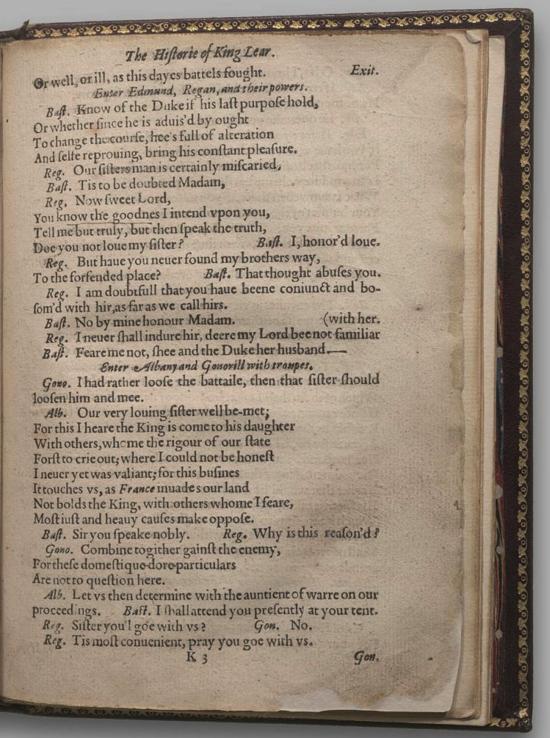 The Historie of King Lear.
Or well, or ill, as this dayes battels fought. Exit.
Enter Edmund, Regan, and their powers.
Bast. Know of the Duke if his last purpose hold,
Or whether since he is aduis'd by ought
To change the course, hee's full of alteration
And selfe reprouing, bring his constant pleasure.
Reg. Our sisters man is certainly miscaried,
Bast. Tis to be doubted Madam,
Reg. Now sweet Lord,
You know the goodnes I intend vpon you,
Tell me but truly, but then speak the truth,
Doe you not loue my sister? Bast. I, honor'd loue.
Reg. But haue you neuer found my brothers way,
To the forfended place? Bast. That thought abuses you.
Reg. I am doubtfull that you haue beene coniunct and bo-
som'd with hir, as far as we call hirs.
Bast. No by mine honour Madam. (with her.
Reg. I neuer shall indure hir, deere my Lord bee not familiar
Bast. Feare me not, shee and the Duke her husband.
Enter Albany and Gonorill with troupes.
Gono. I had rather loose the battaile, then that sister should
loosen him and mee.
Alb. Our very louing sister well be-met;
For this I heare the King is come to his daughter
With others, whome the rigour of our state
Forst to crie out; where I could not be honest
I neuer yet was valiant; for this busines
It touches vs, as France inuades our land
Not bolds the King, with others whome I feare,
Most iust and heauy causes make oppose.
Bast. Sir you speake nobly. Reg. Why is this reason'd?
Gono. Combine togither gainst the enemy,
For these domestique dore particulars
Are not to question here.
Alb. Let vs then determine with the auntient of warre on our
proceedings. Bast. I shall attend you presently at your tent.
Reg. Sister you'l goe with vs? Gon. No.
Reg. Tis most conuenient, pray you goe with vs.
K 3 Gon.